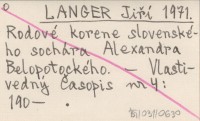 LANGER Jiří 1971.
Rodové korene slovenské-
ho sochára Alexandra
Belopotockého. — Vlasti-
vedný časopis nr 4:
190— .